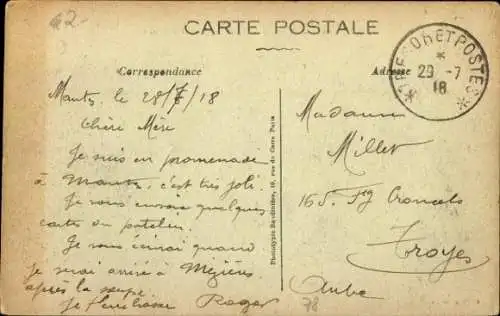 42-
CARTE POSTALE
Correspondance
Adresse
TRESOR ET POSTES
*
29 -7
18
* *
Mantes, le 28/7/18
Chère Mère
Je suis en promenade
à Mantes, c'est très joli.
Je vous envoie quelques
cartes du patelin.
Je vous écrirai quand
je serai arrivé à Mézières
après la soupe.
Je t'embrasse Roger
Phototypie Baudinière, 10, rue du Caire Paris
Madame
Millet
165 Fg Croncels
Troyes
Aube
78